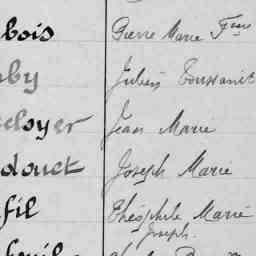 bois Pierre Marie Fçois
by Julien Toussaint
cloyer Jean Marie
douet Joseph Marie
fil Théophile Marie
Joseph.